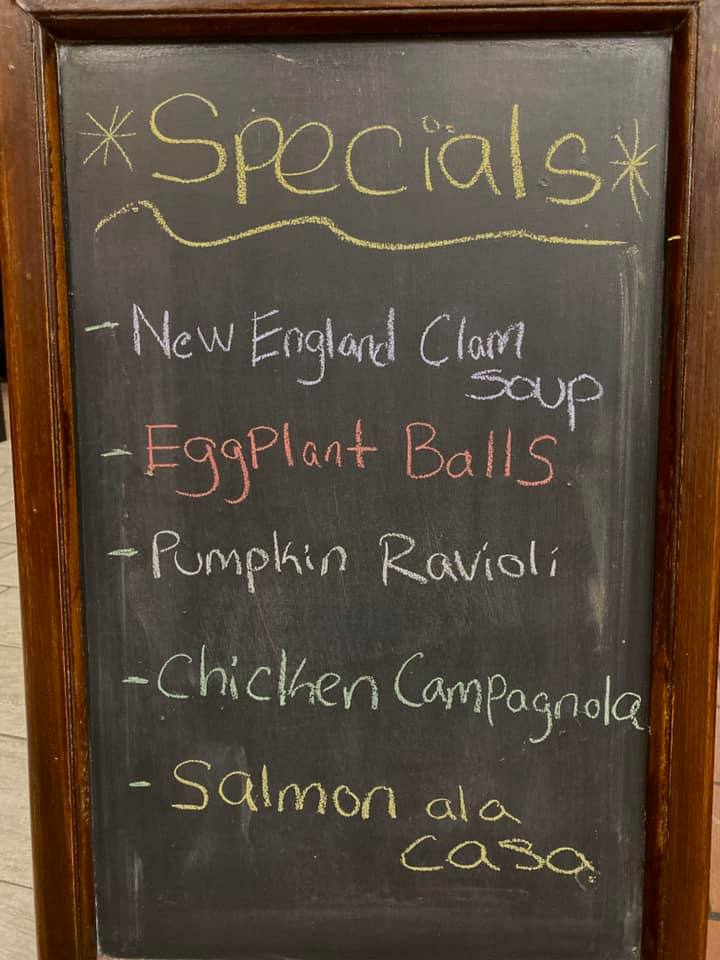 *Specials*
- New England Clam
Soup
- Eggplant Balls
- Pumpkin Ravioli
- Chicken Campagnola
- Salmon ala
casa